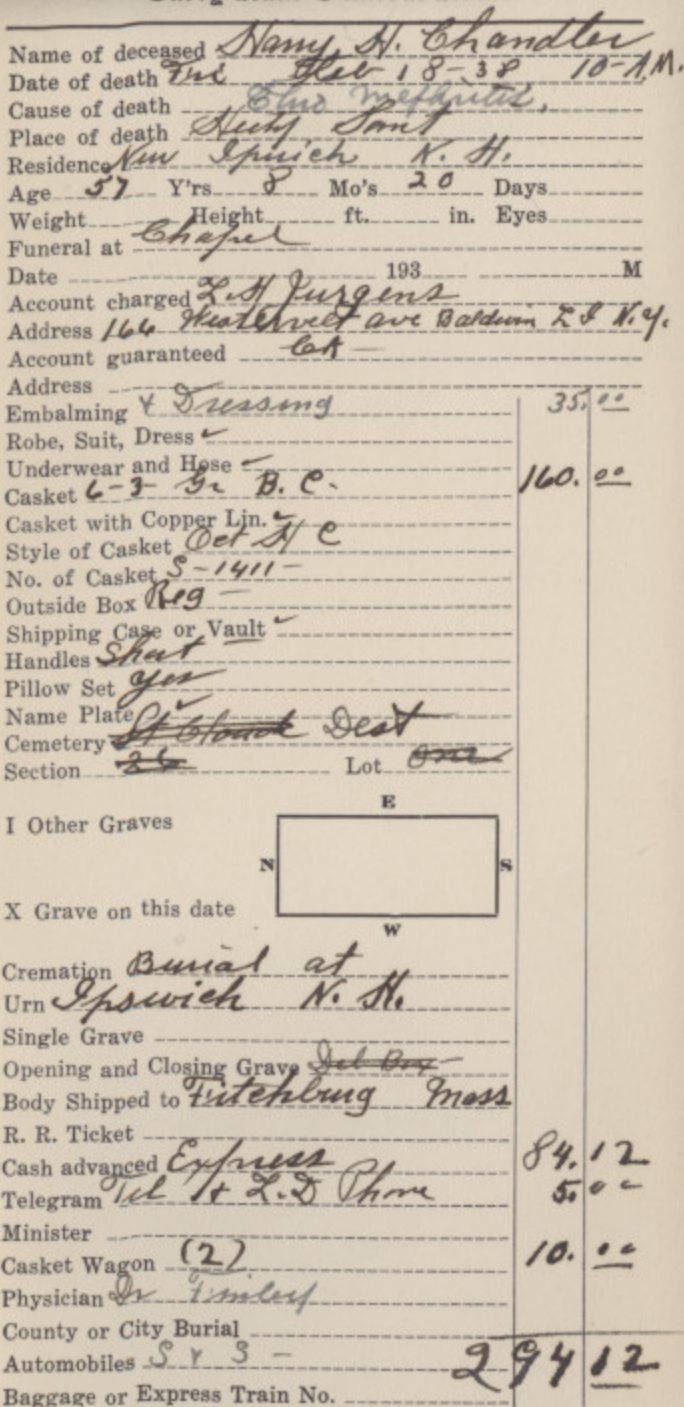 Name of deceased Harry H. Chandler
Date of death Fri Feb 18-38 10-A.M.
Cause of death
Place of death
Residence New Ipswich N. H.
Age 57 Y'rs 8 Mo's 20 Days
Weight Height ft. in. Eyes
Funeral at Chapel
Date 193 M
Account charged L. H Jurgens
Address 166 Westervelt ave Baldwin L I N.Y.
Account guaranteed
Address
Embalming & Dressing 35.00
Robe, Suit, Dress ✓
Underwear and Hose ✓
Casket 6-3 Gr B. C. 160.00
Casket with Copper Lin. ✓
Style of Casket Oct H C
No. of Casket S-1411-
Outside Box Reg -
Shipping Case or Vault ✓
Handles Short
Pillow Set yes
Name Plate ✓
Cemetery St Cloud Dest
Section 26 Lot One
E
I Other Graves
N S
X Grave on this date
W
Cremation Burial at
Urn Ipswich N. H.
Single Grave
Opening and Closing Grave Del Box
Body Shipped to Fitchburg Mass
R. R. Ticket
Cash advanced Express 84.12
Telegram Tel & L.D Phone 5.00
Minister
Casket Wagon (2) 10.00
Physician Dr
County or City Burial
Automobiles S & S - 294 12
Baggage or Express Train No.